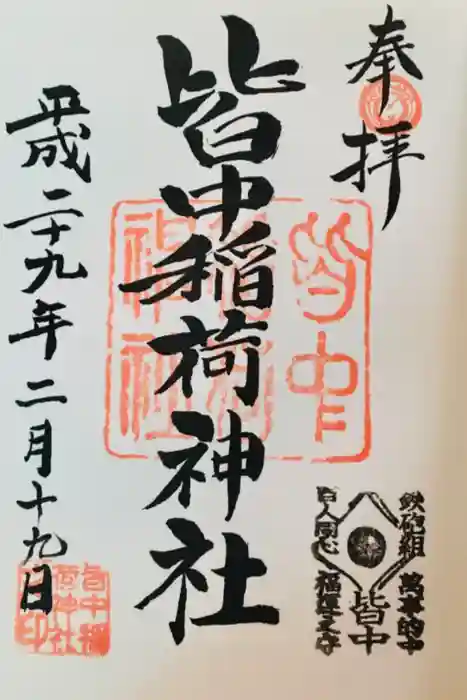 奉拝
皆中稲荷神社
平成二十九年二月十九日
皆中
稲荷
神社
鉄砲組
百人同心
萬事的中
皆中
皆中稲
荷神社